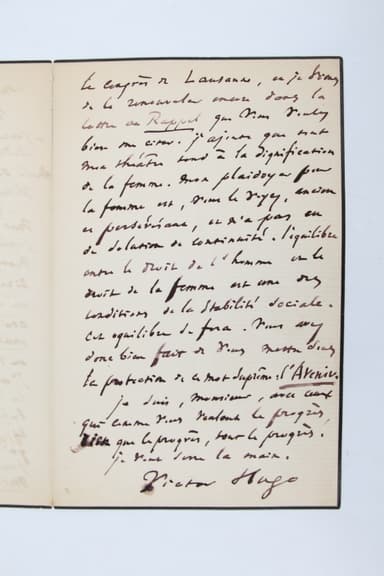 le congrès de Lausanne, et je viens
de le renouveler encore dans la
lettre au Rappel que vous voulez
bien me citer. j'ajoute que tout
mon théâtre tend à la dignification
de la femme. Mon plaidoyer pour
la femme est, vous le voyez, ancien
et persévérant, et n'a pas eu
de solution de continuité. l'équilibre
entre le droit de l'homme et le
droit de la femme est une des
conditions de la stabilité sociale.
Cet équilibre se fera. Vous avez
donc bien fait de vous mettre sous
la protection de ce mot suprême : l'Avenir.
je suis, monsieur, avec ceux
qui comme vous veulent le progrès,
rien que le progrès, tout le progrès.
je vous serre la main.
Victor Hugo